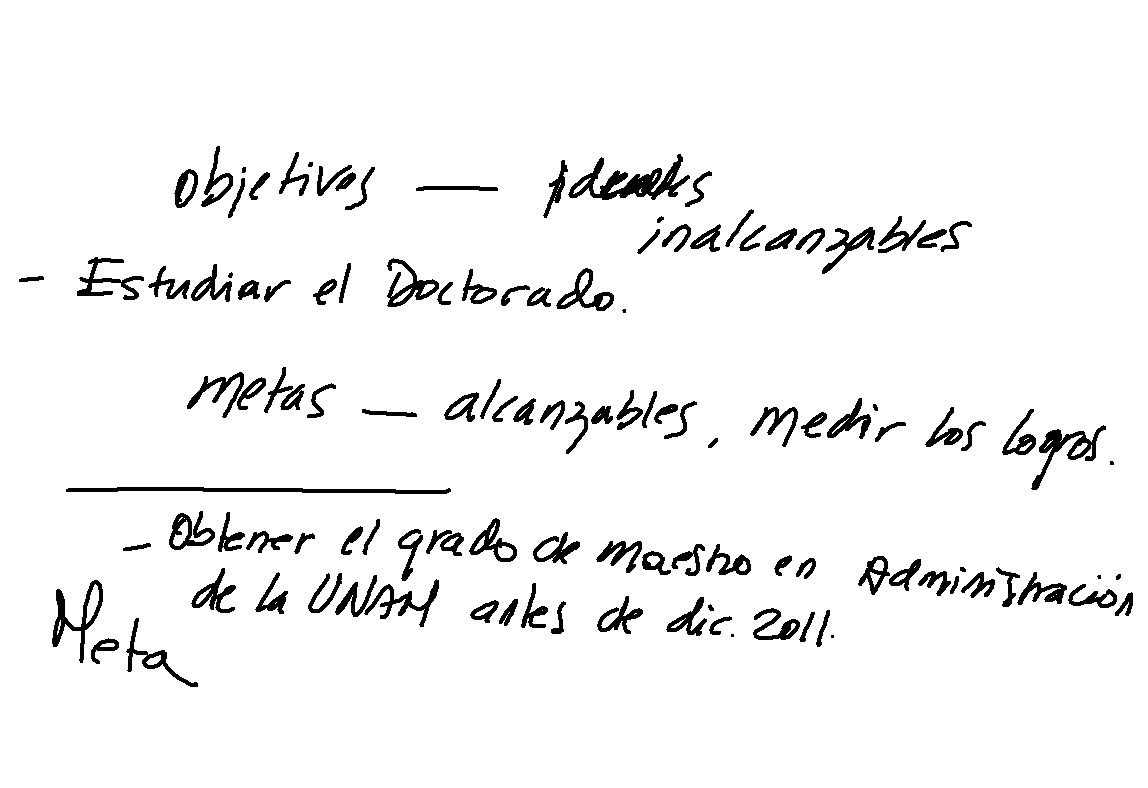 objetivos —
inalcanzables
- Estudiar el Doctorado.
metas — alcanzables, medir los logros.
- Obtener el grado de maestro en Administración
de la UNAM antes de dic. 2011.
Meta